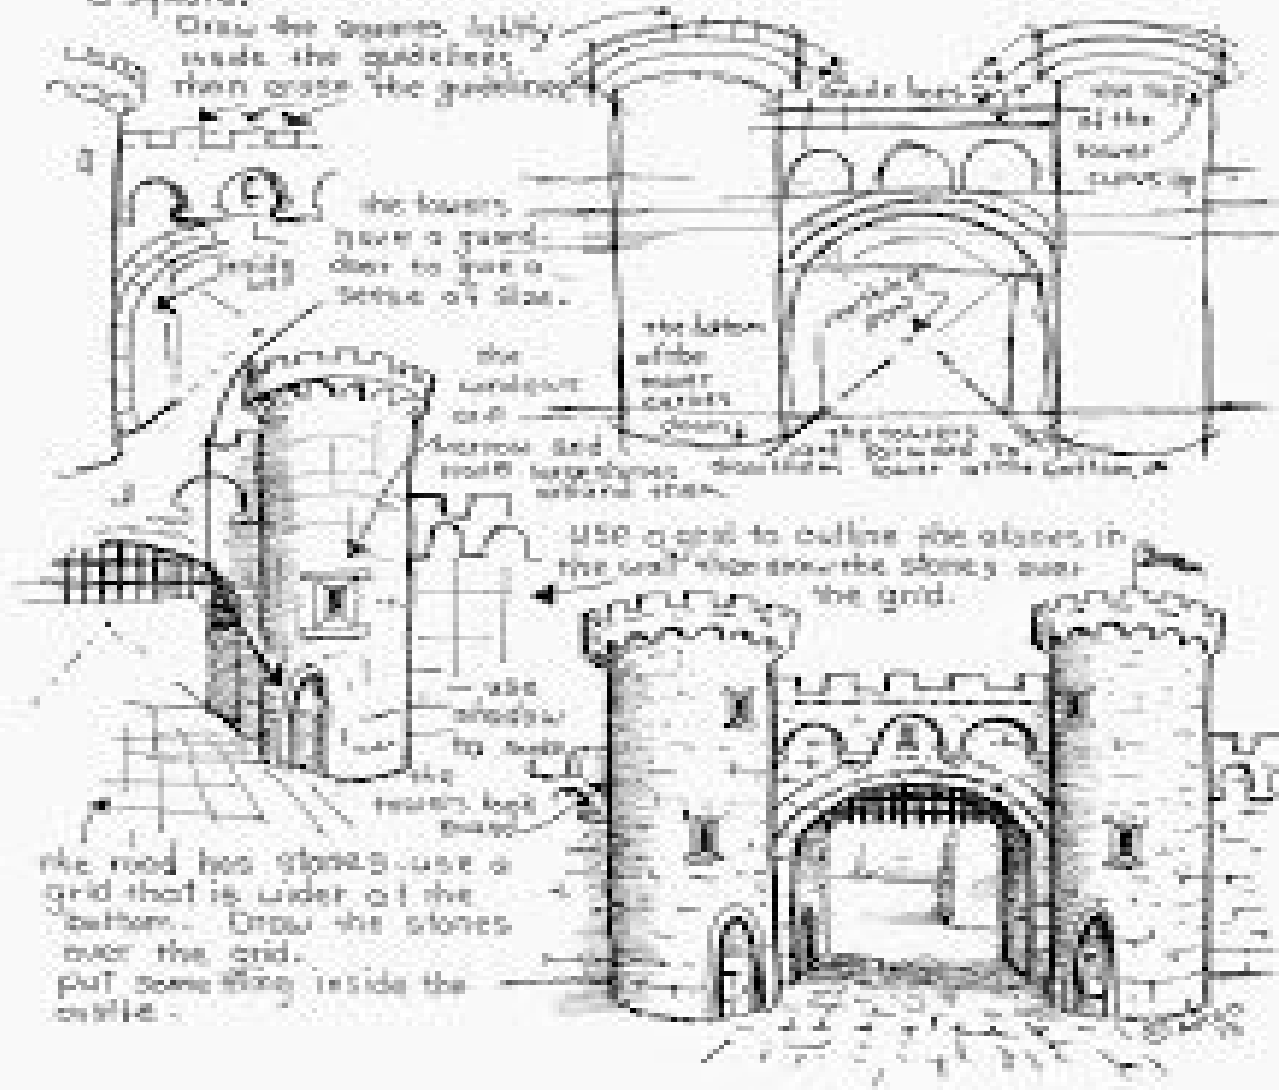 Draw the squares lightly
inside the guidelines
then erase the guidelines
guide lines
the top
of the
tower
curves up
inside
wall
the towers
have a guard
door to give a
sense of size.
vanishing
point
the bottom
of the
tower
curves
down
the
windows
are
narrow and
have large stones
around them.
the towers
lower at the bottom
use a grid to outline the stones in
the wall then draw the stones over
the grid.
use
shadow
to make
the
towers look
round
the road has stones. use a
grid that is wider at the
bottom. Draw the stones
over the grid.
put something inside the
castle.